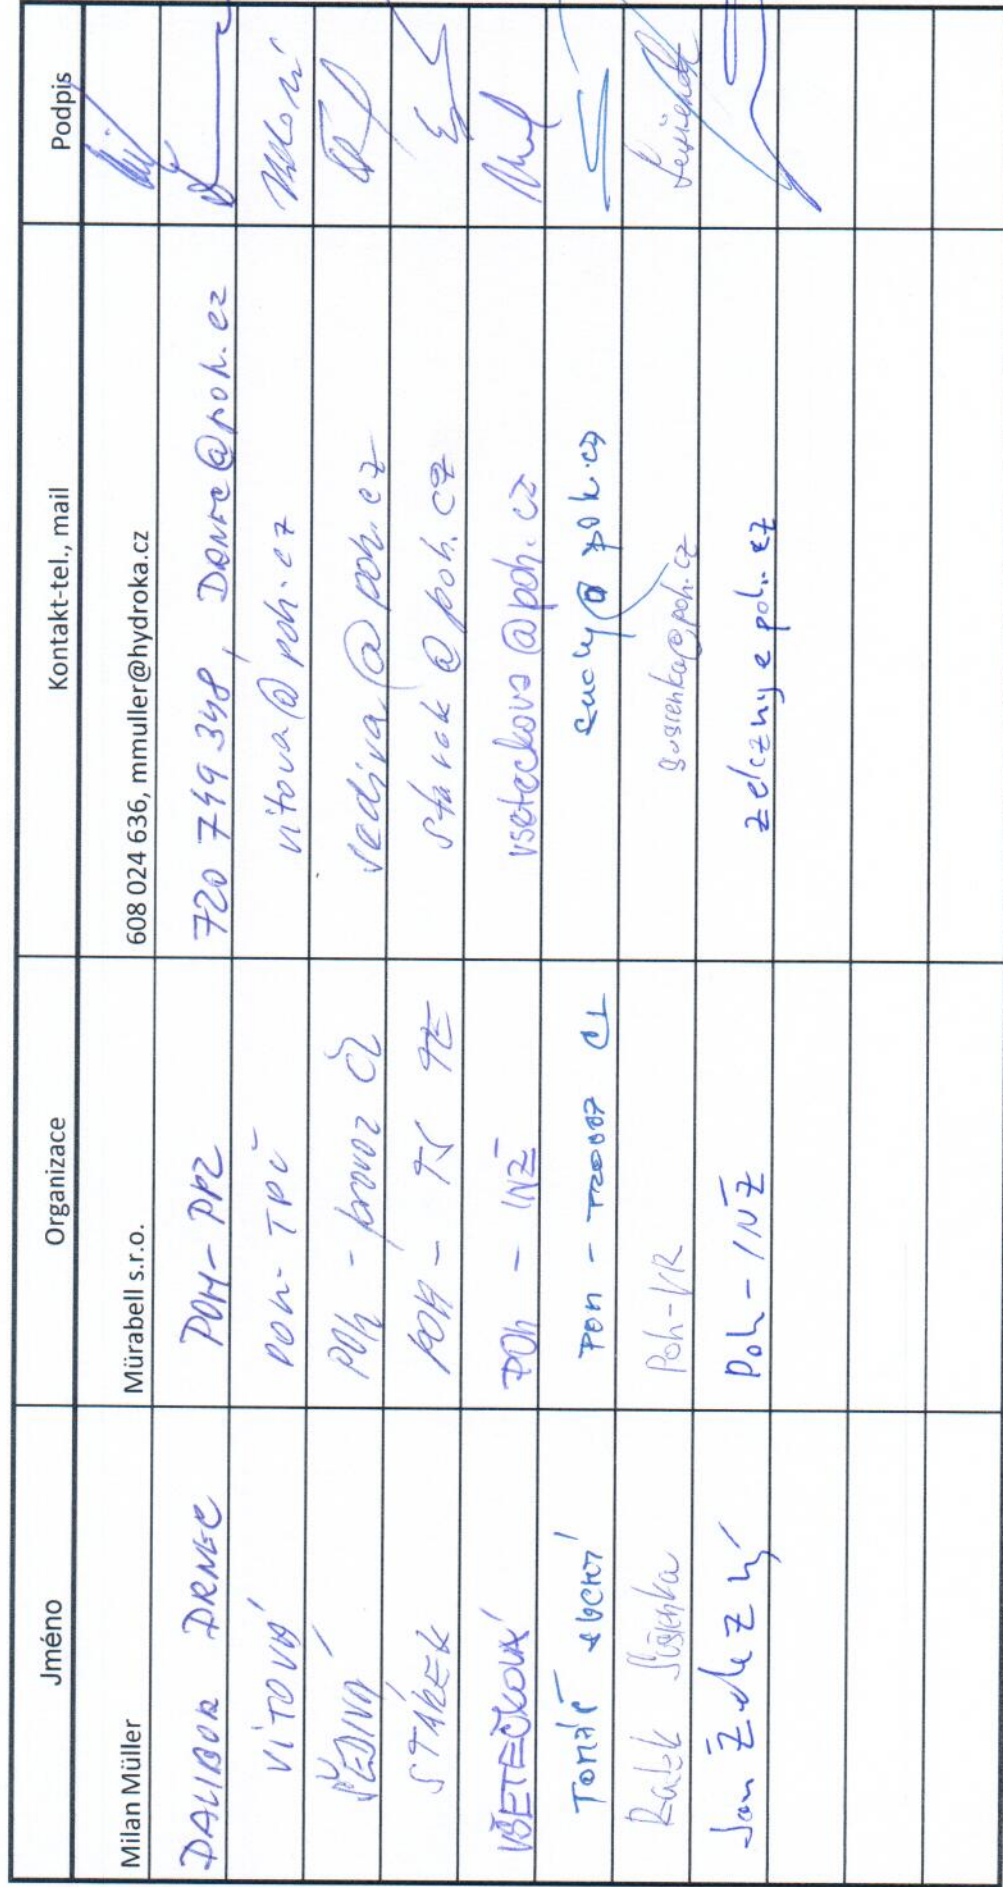 Jméno Organizace Kontakt-tel., mail Podpis
Milan Müller Mürabell s.r.o. 608 024 636, mmuller@hydroka.cz
DALIBOR DRNEC POH-PPZ 720 749 348, Drnec@poh.cz
VÍTOVÁ POH-TPČ vitova@poh.cz
ŠEDIVÁ POh - provoz ČL sediva@poh.cz
STÁREK POH - starek@poh.cz
VŠETEČKOVÁ POh - INŽ vseteckova@poh.cz
TOMÁŠ SUCHÝ POH - PROVOZ ČL suchy@poh.cz
Radek Sušienka Poh-VR susienka@poh.cz
Jan Železný Poh-INŽ zelezny@poh.cz